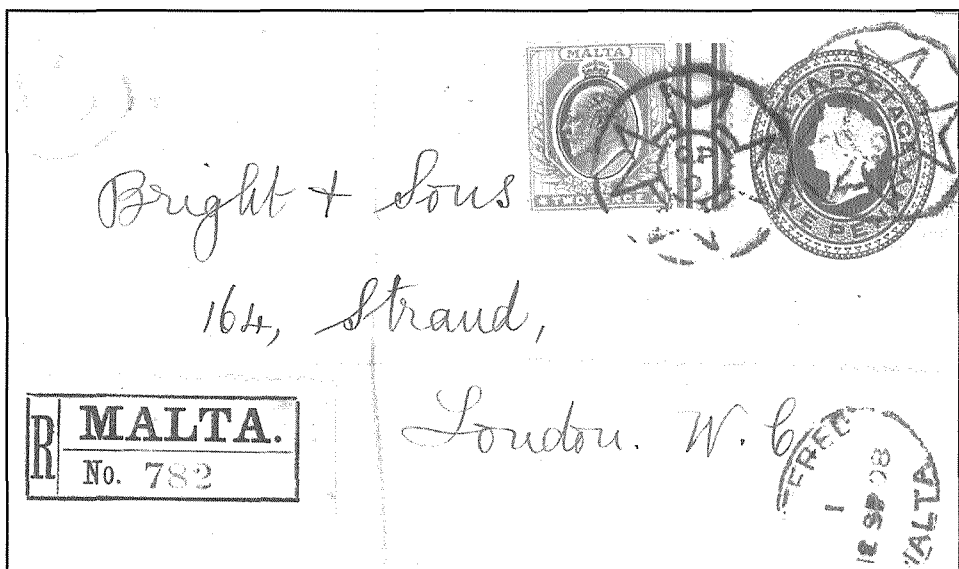 MALTA
TWOPENCE
MALTA POSTAGE
ONE PENNY
Bright + Sons
164, Strand,
London. W. C
R
MALTA.
No. 782
TERED
1
SP 08
MALTA